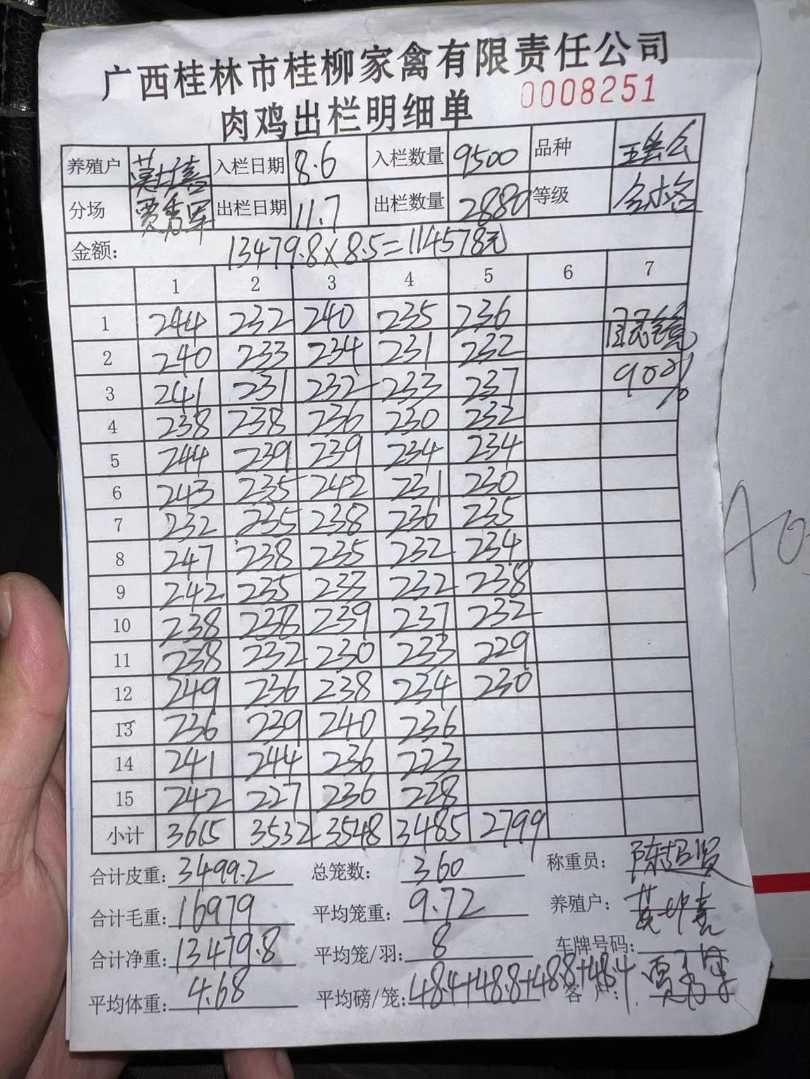 广西桂林市桂柳家禽有限责任公司
肉鸡出栏明细单 0008251
养殖户 入栏日期 8.6 入栏数量 9500 品种
分场 贾秀军 出栏日期 11.7 出栏数量 2880 等级 合格
金额: 13479.8×8.5=114578元
1 2 3 4 5 6 7
1 244 232 240 235 236
2 240 233 234 231 232
3 241 231 232 233 237 90%
4 238 238 236 230 232
5 244 239 239 234 234
6 243 235 242 231 230
7 232 235 238 236 235
8 247 238 235 232 234
9 242 235 233 232 238
10 238 238 239 237 232
11 238 232 230 233 229
12 249 236 238 234 230
13 236 239 240 236
14 241 244 236 223
15 242 227 236 228
小计 3615 3532 3548 3485 2799
合计皮重: 3499.2 总笼数: 360 称重员:
合计毛重: 16979 平均笼重: 9.72 养殖户:
合计净重: 13479.8 平均笼/羽: 8 车牌号码:
平均体重: 4.68 平均磅/笼: 48.4+48.8+48.8+48.4 客户: